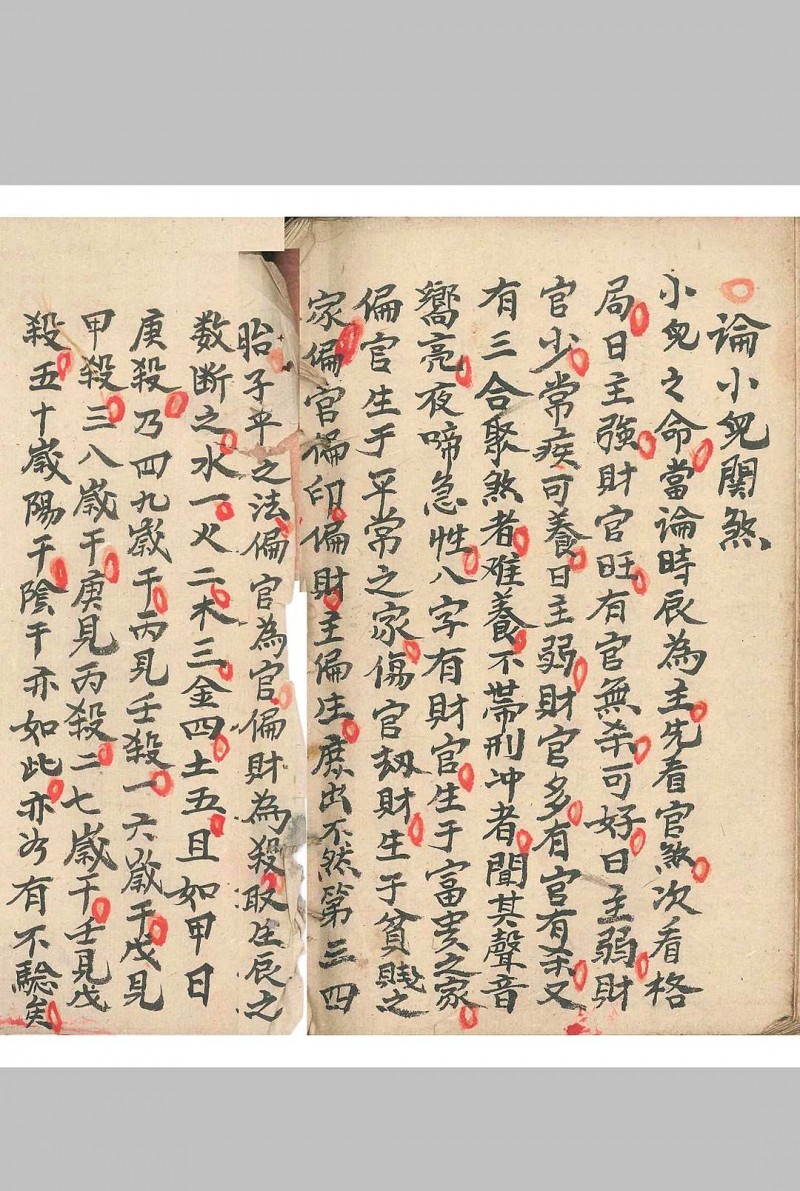 論小兒関煞
小兒之命當論時辰為主先看官煞次看格
局日主強財官旺有官無杀可好日主弱財
官少常疾可養日主弱財官多有官有杀又
有三合聚煞者难養不帶刑冲者聞其聲音
嚮亮夜啼急性八字有財官生于富贵之家
偏官生于平常之家傷官刼財生于貧賤之
家偏官偏印偏財主偏生庶出不然第三四
胎子平之法偏官為官偏財為殺取生辰之
数断之水一火二木三金四土五且如甲日
庚殺乃四九歲干丙見壬殺一六歲干戊見
甲殺三八歲干庚見丙殺二七歲干壬見戊
殺五十歲陽干陰干亦如此亦為有不驗矣